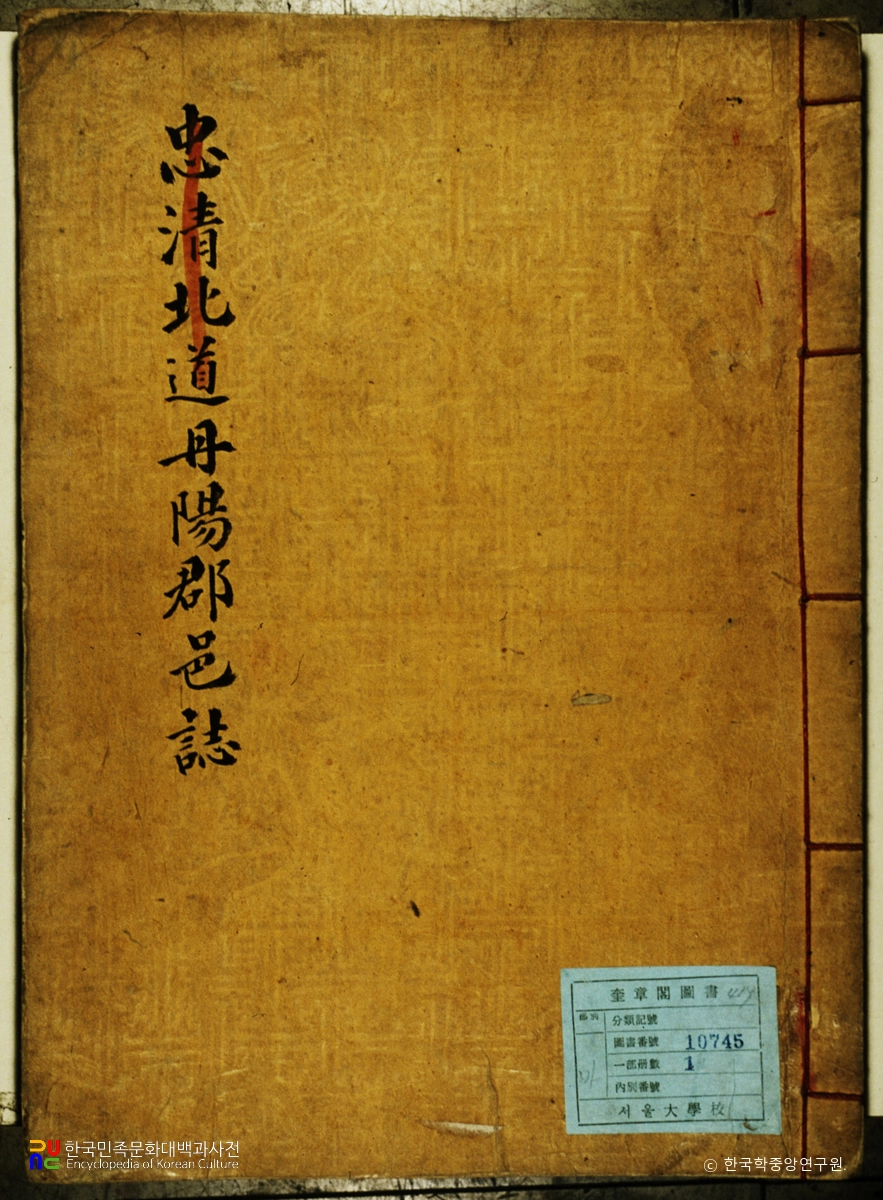 忠清北道丹陽郡邑誌
奎章閣圖書
部別
分類記號
圖書番號 10745
一部冊數 1
內別番號
서울大學校
한국민족문화대백과사전
Encyclopedia of Korean Culture
© 한국학중앙연구원